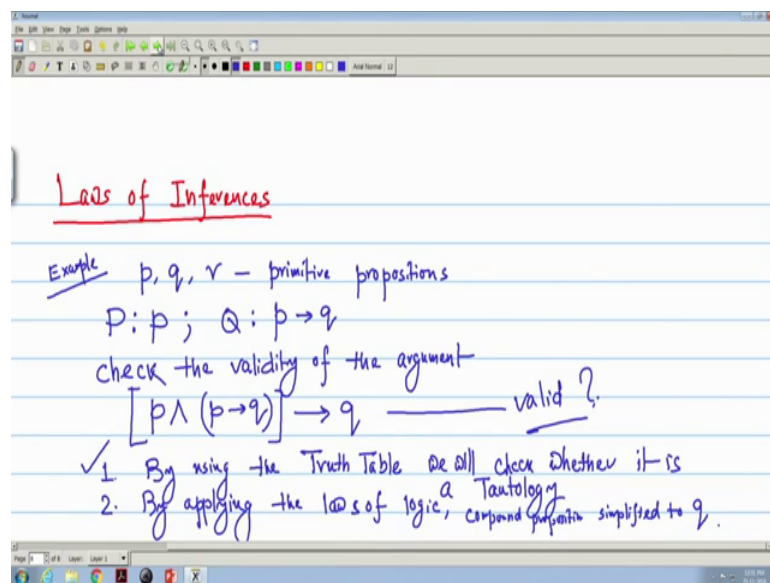 Journal
File Edit View Page Tools Options Help
Arial Normal 12
Laws of Inferences
Example p, q, r – primitive propositions
P: p ; Q: p → q
check the validity of the argument
[p ∧ (p → q)] → q —— valid ?
✓1. By using the Truth Table we will check whether it is
a Tautology
2. By applying the laws of logic, compound proposition simplified to q.
Page 8 of 8 Layer: Layer 1